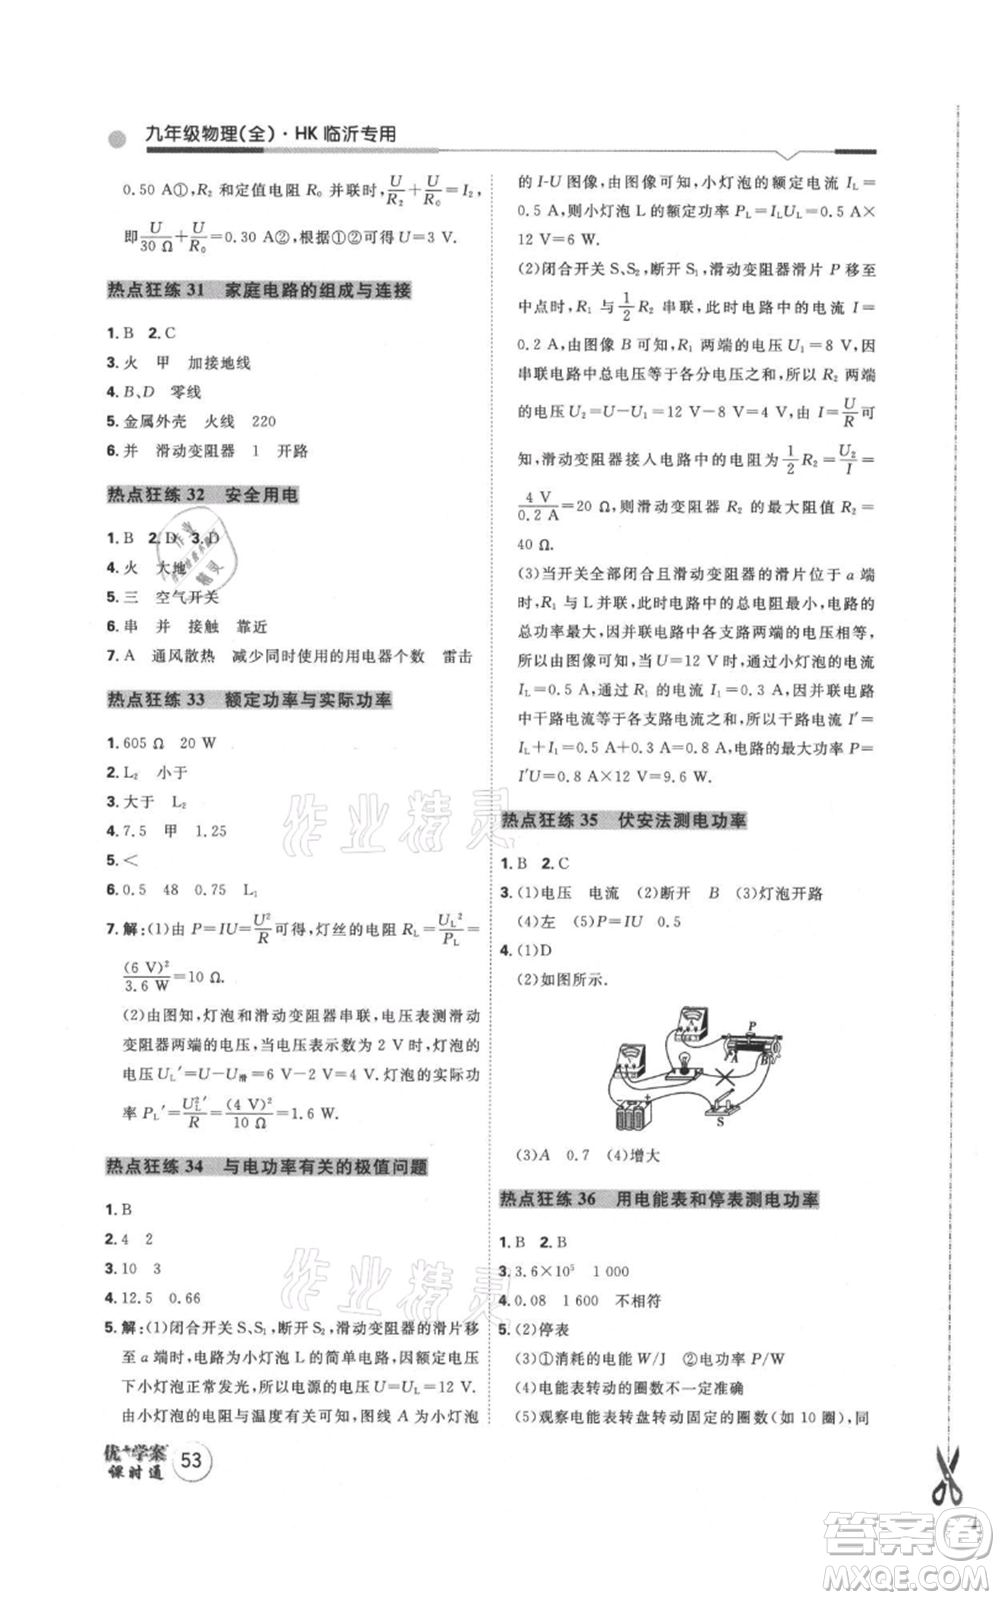 九年级物理(全)·HK 临沂专用
0.50 A①, R₂ 和定值电阻 R₀ 并联时, U/R₂ + U/R₀ = I₂,
即 U/30 Ω + U/R₀ = 0.30 A②, 根据①②可得 U=3 V.
热点狂练 31 家庭电路的组成与连接
1. B 2. C
3. 火 甲 加接地线
4. B、D 零线
5. 金属外壳 火线 220
6. 并 滑动变阻器 1 开路
热点狂练 32 安全用电
1. B 2. D 3. D
4. 火 大地
5. 三 空气开关
6. 串 并 接触 靠近
7. A 通风散热 减少同时使用的用电器个数 雷击
热点狂练 33 额定功率与实际功率
1. 605 Ω 20 W
2. L₂ 小于
3. 大于 L₂
4. 7.5 甲 1.5
5. <
6. 0.5 48 0.75 L₁
7. 解:(1)由 P=IU=U²/R 可得,灯丝的电阻 R_L=U_L²/P_L=
(6 V)²/3.6 W=10 Ω.
(2)由图知,灯泡和滑动变阻器串联,电压表测滑动
变阻器两端的电压,当电压表示数为 2 V 时,灯泡的
电压 U_L′=U−U滑=6 V−2 V=4 V. 灯泡的实际功
率 P_L′=U_L²′/R=(4 V)²/10 Ω=1.6 W.
热点狂练 34 与电功率有关的极值问题
1. B
2. 4 2
3. 10 3
4. 12.5 0.66
5. 解:(1)闭合开关 S、S₁,断开 S₂,滑动变阻器的滑片移
至 a 端时,电路为小灯泡 L 的简单电路,根据此时
小灯泡正常发光,所以电源的电压 U=U_L=12 V.
由小灯泡的电阻与温度有关可知,图线 A 为小灯泡
的 I-U 图像,由图像可知,小灯泡的额定电流 I_L=
0.5 A,则小灯泡 L 的额定功率 P_L=I_LU_L=0.5 A×
12 V=6 W.
(2)闭合开关 S、S₂,断开 S₁,滑动变阻器滑片 P 移至
中点时,R₁ 与 1/2 R₂ 串联,此时电路中的电流 I=
0.2 A,由图像 B 可知,R₁ 两端的电压 U₁=8 V,因
串联电路中总电压等于各分电压之和,所以 R₂ 两端
的电压 U₂=U−U₁=12 V−8 V=4 V,由 I=U/R 可
知,滑动变阻器接入电路中的电阻为 1/2 R₂=U₂/I=
4 V/0.2 A=20 Ω,则滑动变阻器 R₂ 的最大阻值 R₂=
40 Ω.
(3)当开关全部闭合且滑动变阻器的滑片位于 a 端
时,R₁ 与 L 并联,此时电路中的总电阻最小,电路的
总功率最大,因并联电路中各支路两端的电压相等,
所以由图像可知,此时通过小灯泡的电流 I_L=
0.5 A,通过 R₁ 的电流 I₁=0.3 A,因并联电路
中干路电流等于各支路电流之和,所以干路电流 I′=
I_L+I₁=0.5 A+0.3 A=0.8 A,电路的最大功率 P=
I′U=0.8 A×12 V=9.6 W.
热点狂练 35 伏安法测电功率
1. B 2. C
3. (1)电压 电流 (2)断开 B (3)灯泡开路
(4)左 (5)P=IU 0.5
4. (1)D
(2)如图所示.
P
A B
S
(3)A 0.7 (4)增大
热点狂练 36 用电能表和停表测电功率
1. B 2. B
3. 3.6×10⁵ 1 000
4. 0.08 1 600 不相符
5. (2)停表
(3)①消耗的电能 W/J ②电功率 P/W
(4)电能表转动的圈数不一定准确
(5)观察电能表转盘转动固定的圈数(如 10 圈),同
优+学案
课时通
53
作业精灵
作业精灵
答案圈
MXQE.COM